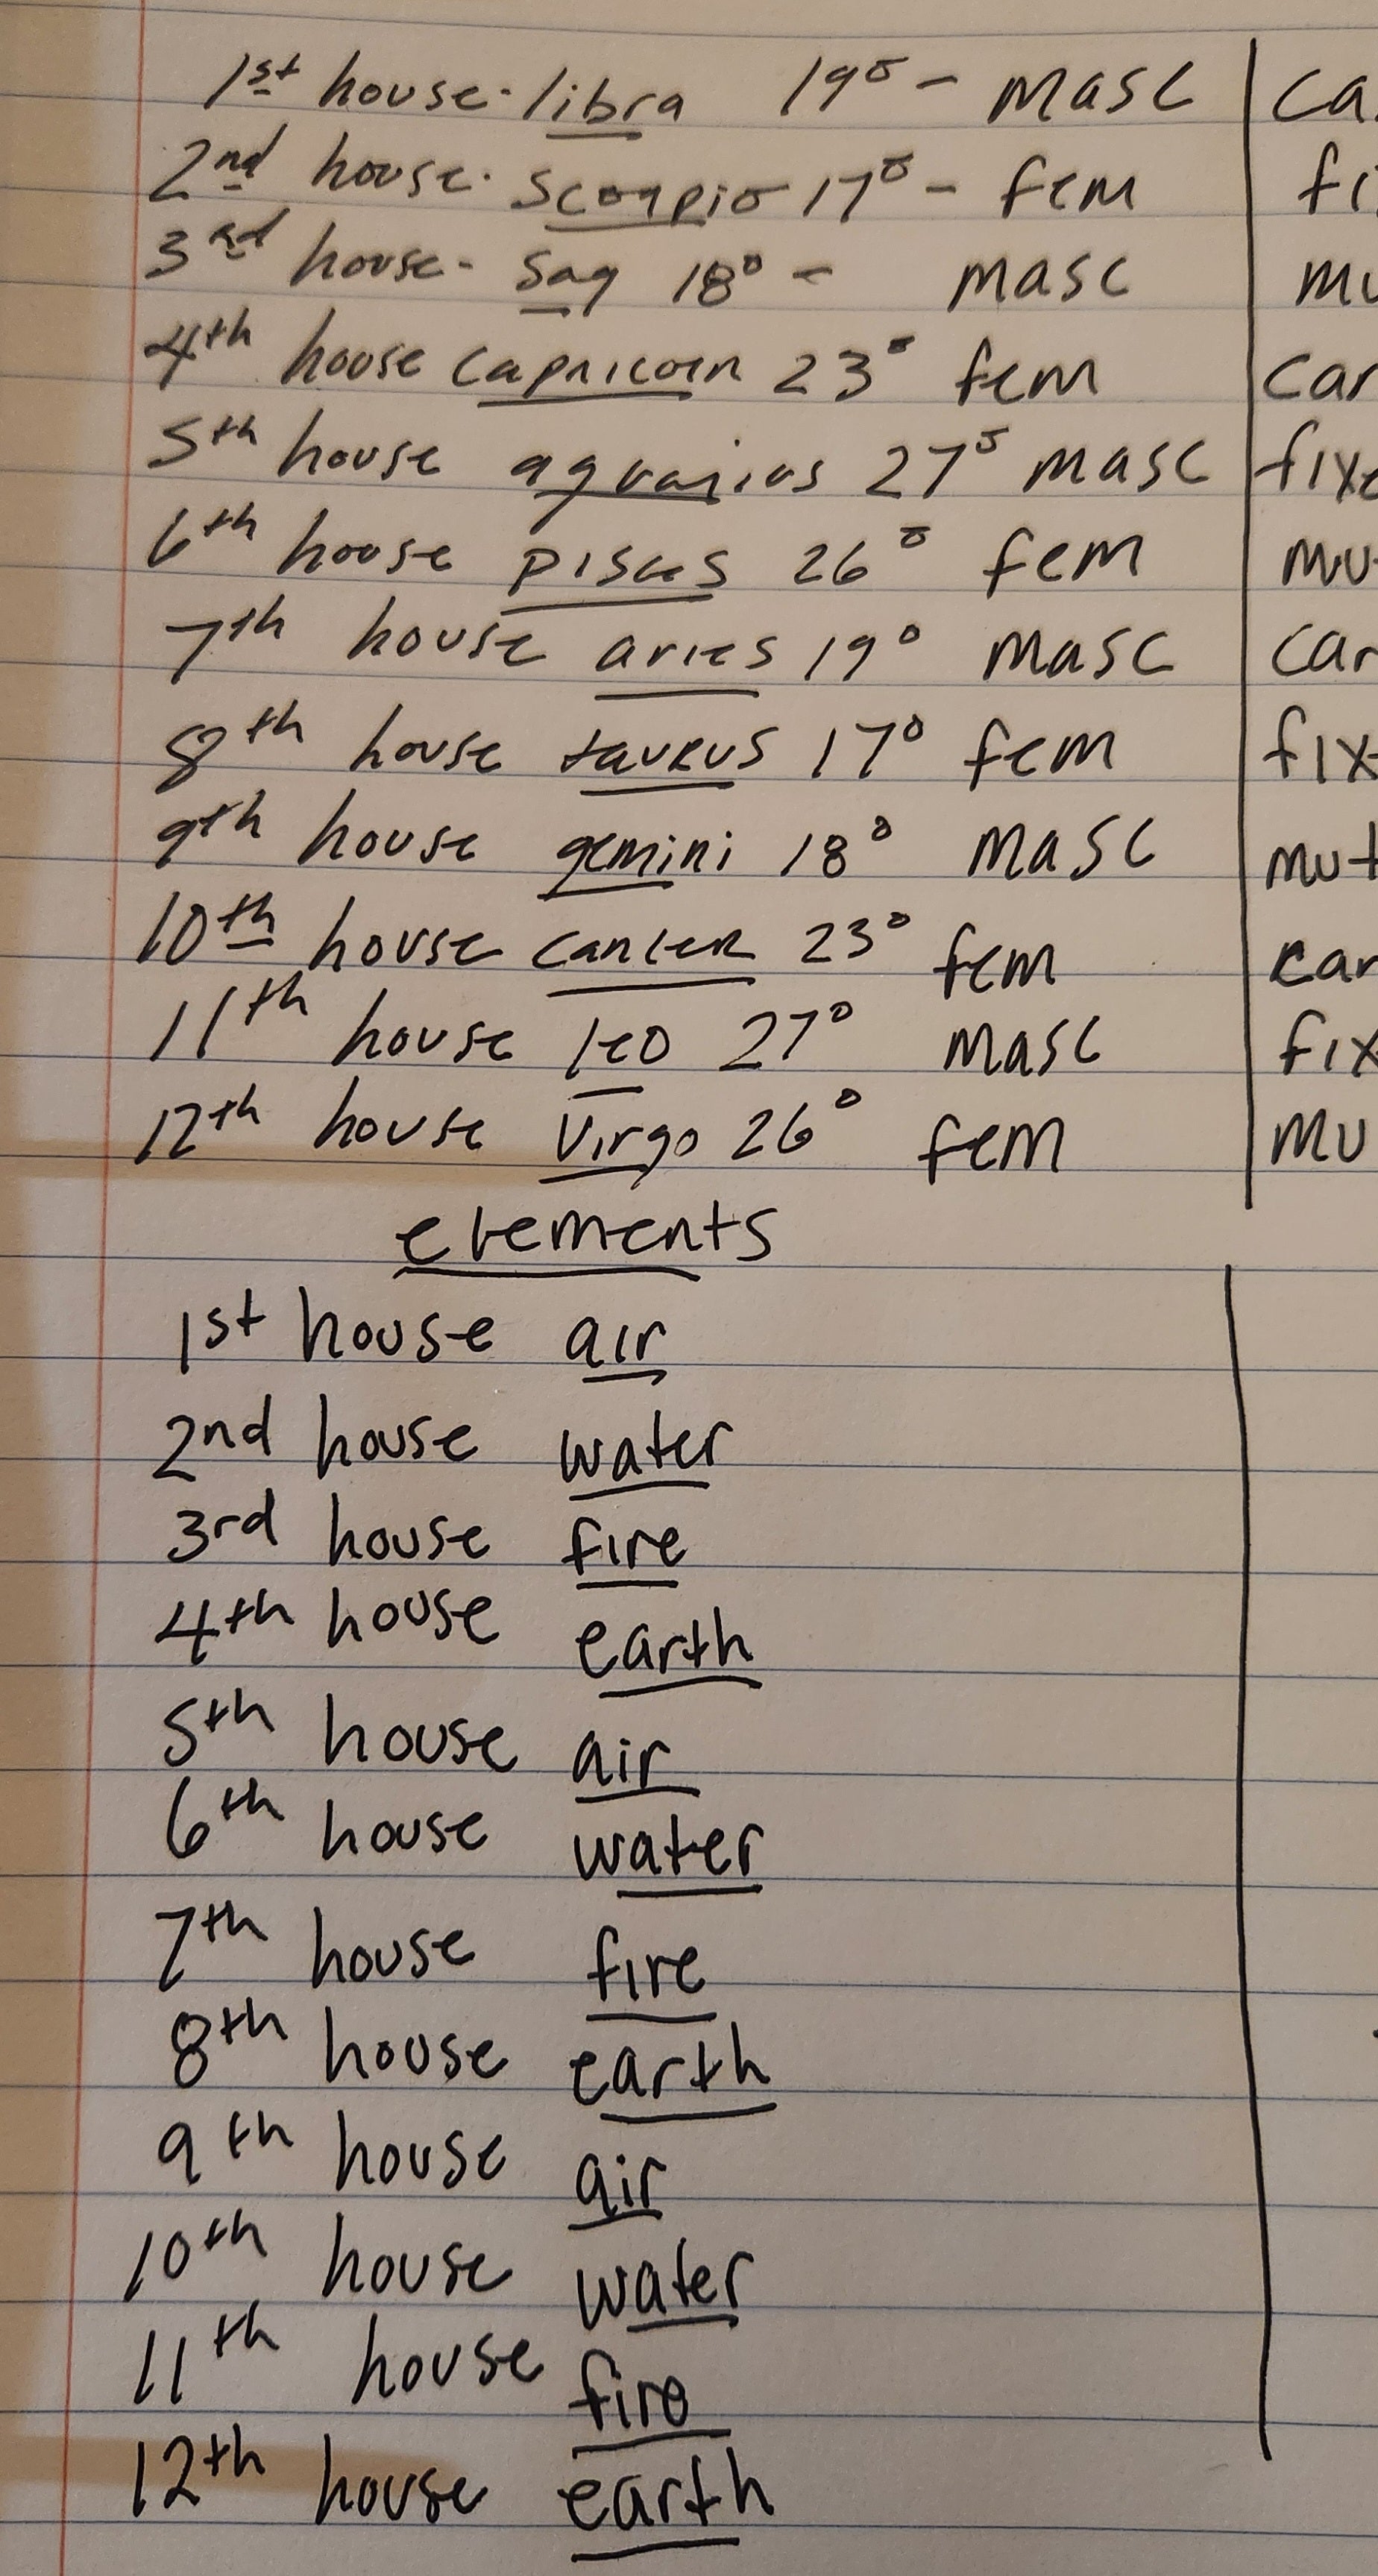 1st house - libra 19° - masc | ca
2nd house - Scorpio 17° - fem | fi
3rd house - Sag 18° - masc | mu
4th house capricorn 23° fem | car
5th house aquarius 27° masc | fixe
6th house pisces 26° fem | mu
7th house aries 19° masc | car
8th house taurus 17° fem | fix
9th house gemini 18° masc | mut
10th house cancer 23° fem | car
11th house leo 27° masc | fix
12th house Virgo 26° fem | mu
elements
1st house air
2nd house water
3rd house fire
4th house earth
5th house air
6th house water
7th house fire
8th house earth
9th house air
10th house water
11th house fire
12th house earth